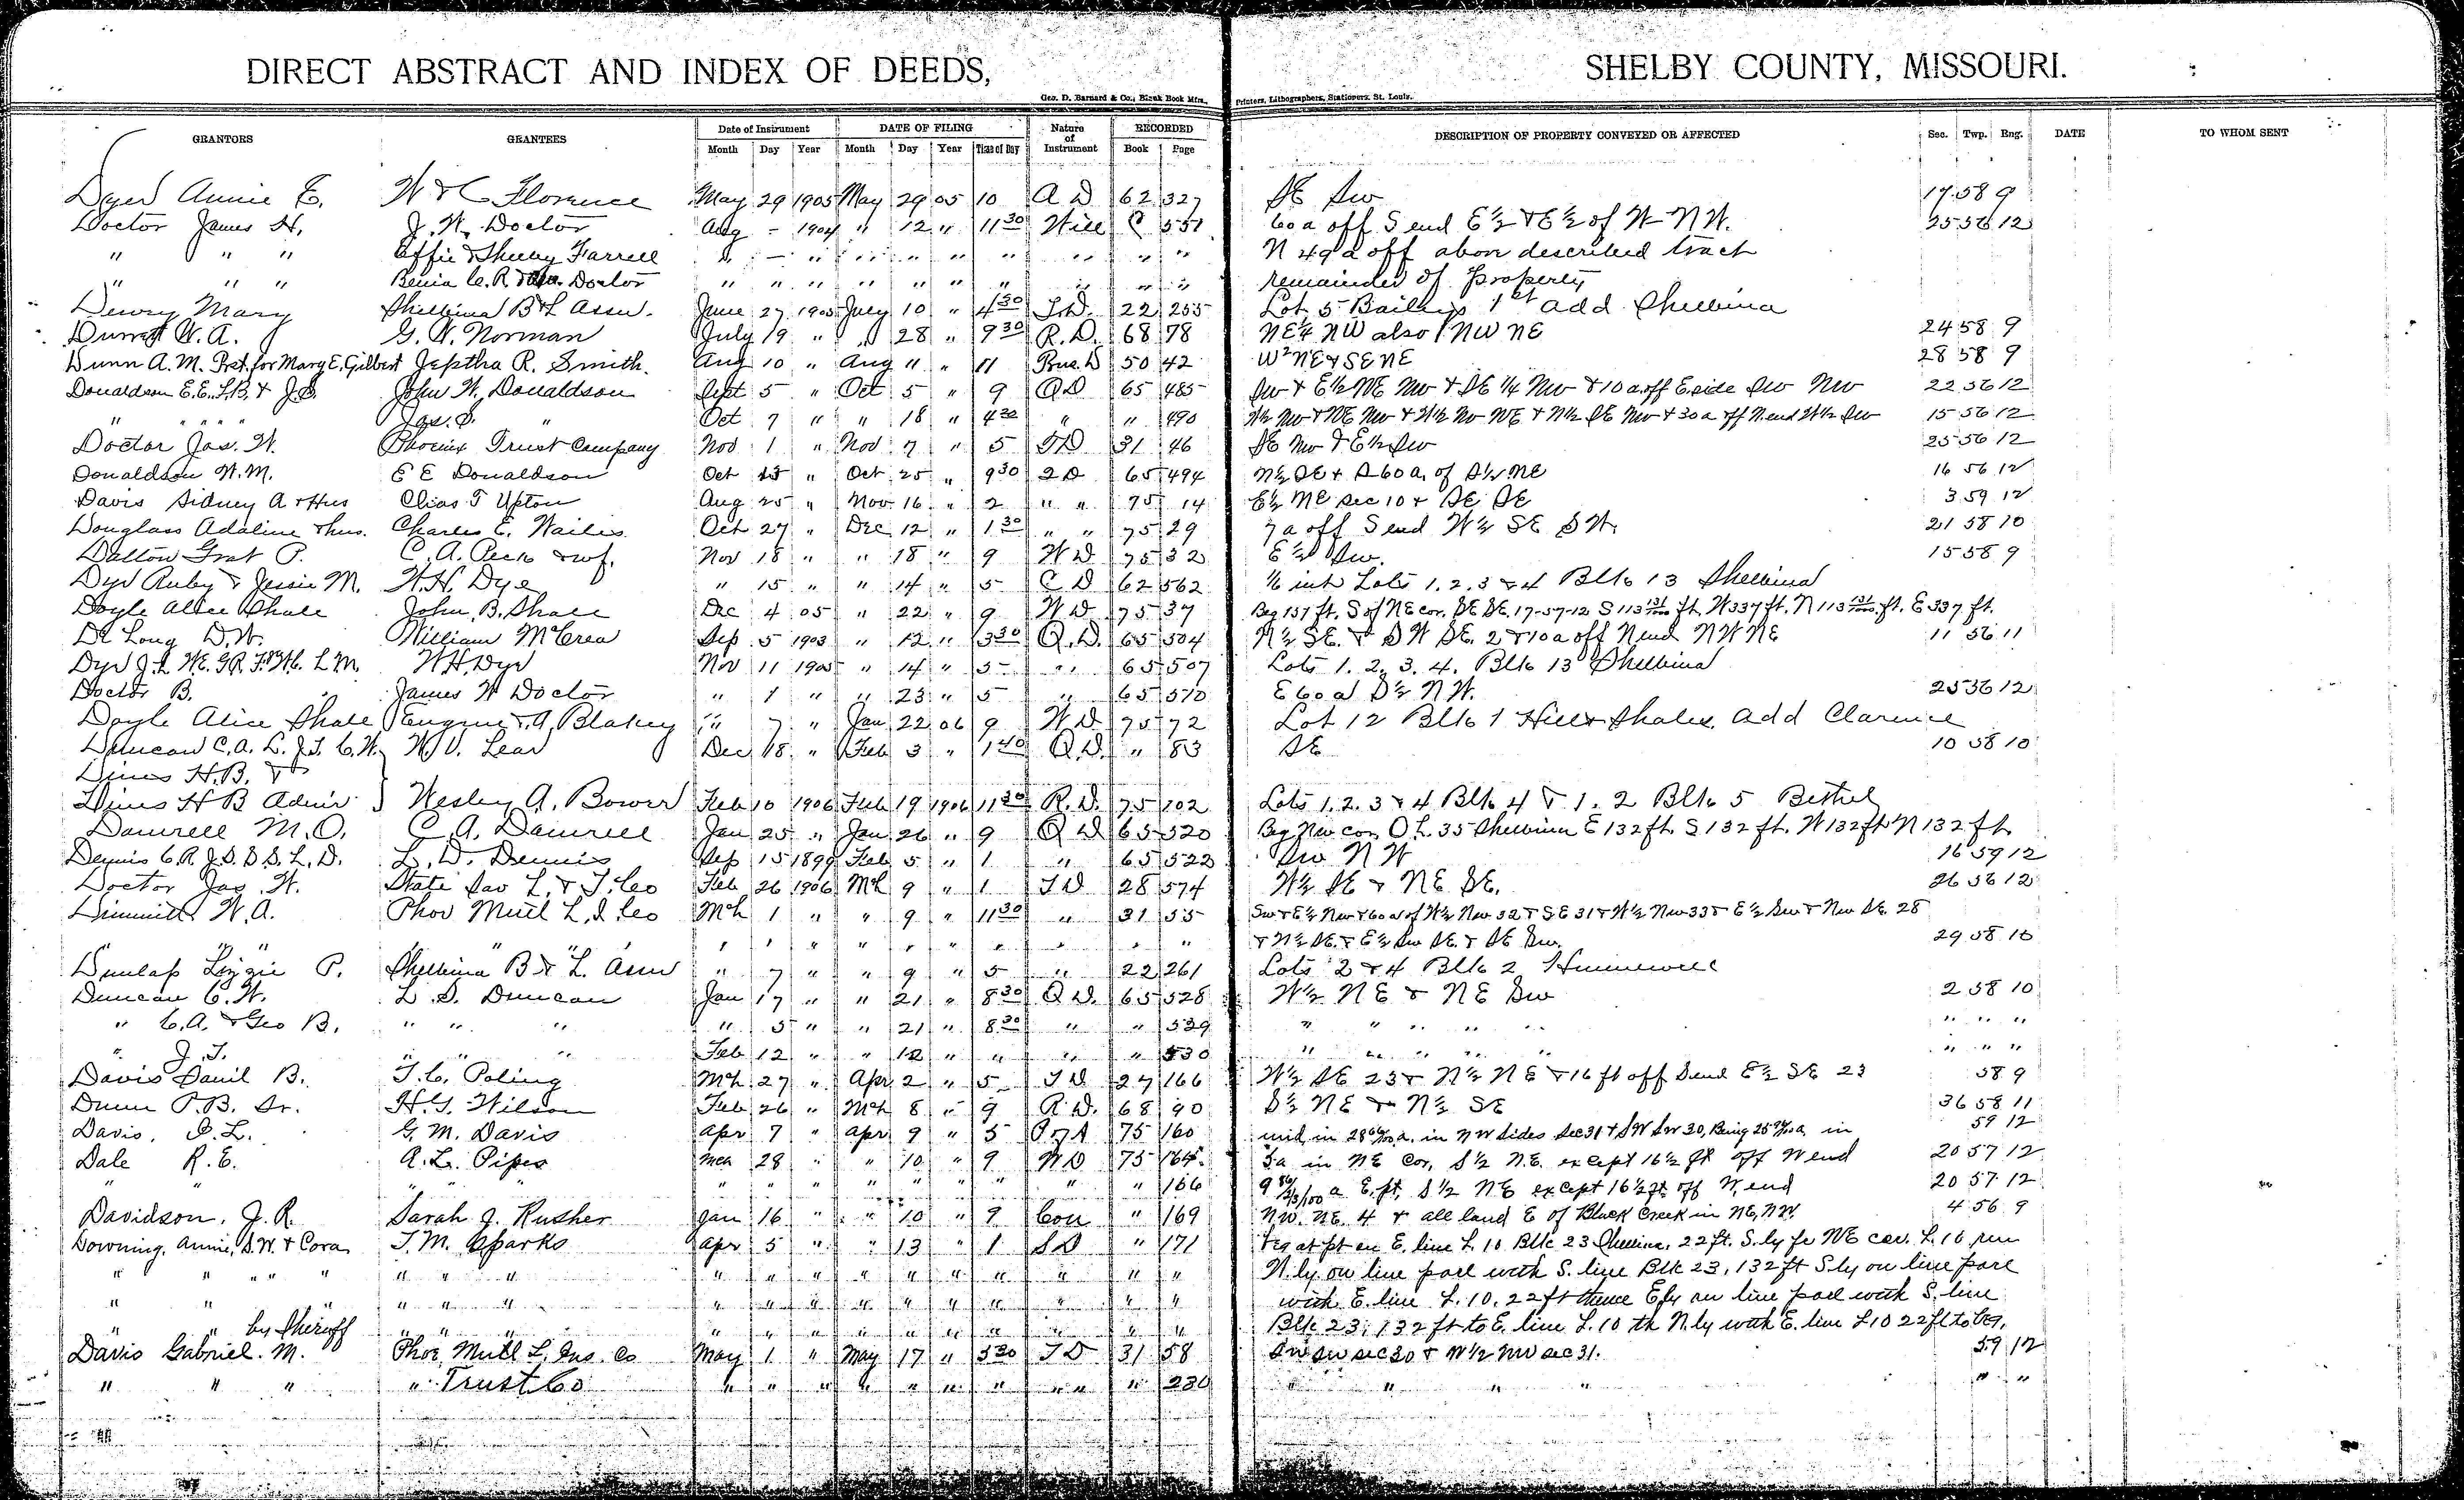 DIRECT ABSTRACT AND INDEX OF DEEDS, SHELBY COUNTY, MISSOURI.
Geo. D. Barnard & Co., Blank Book Mfrs., Printers, Lithographers, Stationers, St. Louis.
GRANTORS GRANTEES Date of Instrument DATE OF FILING Nature of Instrument RECORDED DESCRIPTION OF PROPERTY CONVEYED OR AFFECTED Sec. Twp. Rng. DATE TO WHOM SENT
Month Day Year Month Day Year Time of Day Book Page
Dyer Annie E. W & C Florence May 29 1905 May 29 05 10 62 327 SE SW 17 58 9
Doctor James H. J. W. Doctor Aug - 1904 " 12 " 11 30 Will C 551 60 a off S end E ½ & E ½ of W NW. 25 56 12
" " " Effie & Farrell " — " " " " " " " " N 49 a off above described tract
" " " C. R. Doctor " " " " " " " " " " remainder of property
Dewey Mary Shelbina B & L Assn. June 27 1905 July 10 " 4 30 T.D. 22 255 Lot 5 Baileys 1st add Shelbina
Durrett W. A. G. W. Norman July 19 " " 28 " 9 30 R. D. 68 78 NE & NW also NW NE 24 58 9
Dunn A. M. for Mary E. Gilbert Jeptha R. Smith. Aug 10 " Aug 11 " 11 50 42 W² NE & SE NE 28 58 9
Donaldson E.E., & J.S. John W. Donaldson Sept 5 " Oct 5 " 9 QD 65 485 SW & E½ NE NW & SE ¼ NW & 10 a off E side SW NW 22 56 12
" " " " Jas. S. " Oct 7 " " 18 " 4 30 " " 490 W½ NW & NE NW & W½ NW NE & N½ SE NW & 30 a off N end W½ SW 15 56 12
Doctor Jas. W. Phoenix Trust Company Nov 1 " Nov 7 " 5 TD 31 46 SE NW & E½ SW 25 56 12
Donaldson W. M. E E Donaldson Oct 23 " Oct 25 " 9 30 QD 65 494 N½ SE & S 60 a. of S½ NE 16 56 12
Davis Sidney A & Hus Elias T Upton Aug 25 " Nov 16 " 2 " " 75 14 E½ NE sec 10 & SE SE 3 59 12
Douglass Adaline & hus. Charles E. Wailes Oct 27 " Dec 12 " 1 30 " " 75 29 7 a off S end W½ SE SW. 21 58 10
Dalton Grat P. C. A. Peck & wf. Nov 18 " " 18 " 9 W D 75 32 E½ SW. 15 58 9
Dye Ruby & Jessie M. W. H. Dye " 15 " " 14 " 5 C D 62 562 1/6 int Lots 1. 2. 3 & 4 Blk 13 Shelbina
Doyle Alice Shale John B. Shale Dec 4 05 " 22 " 9 W D 75 37 Beg 157 ft. S of NE cor. SE SE. 17-57-12 S 113 ft. W 337 ft. N 113 ft. E 337 ft.
De Long D. W. William McCrea Sep 5 1903 " 12 " 3 30 Q. D. 65 504 N½ SE. & SW SE. 2 & 10 a off N end NW NE 11 56 11
Dye J. L. W.E. G.R. L. M. W H Dye Nov 11 1905 " 14 " 5 " 65 507 Lots 1. 2. 3. 4. Blk 13 Shelbina
Doctor B. James W Doctor " 1 " " 23 " 5 " 65 510 E 60 a S½ NW. 25 56 12
Doyle Alice Shale Eugene & A. Blakey " 7 " Jan 22 06 9 W D 75 72 Lot 12 Blk 1 Hill & Shales add Clarence
Duncan C. A. L. J. T. C. W. W. V. Lear Dec 18 " Feb 3 " 1 40 Q. D. " 83 SE 10 58 10
Dines H. B. &
Dines H B Admr Wesley A. Bower Feb 10 1906 Feb 19 1906 11 30 R. D. 75 102 Lots 1. 2. 3 & 4 Blk 4 & 1. 2 Blk 5 Bethel
Damrell M. O. C. A. Damrell Jan 25 " Jan 26 " 9 Q D 65 520 Beg NW cor. O L. 35 Shelbina E 132 ft. S 132 ft. W 132 ft N 132 ft
Dennis C. R. J. S. D. S. L. D. L. D. Dennis Sep 15 1899 Feb 5 " 1 " 65 522 SW NW 16 59 12
Doctor Jas. W. State Sav L. & T. Co Feb 26 1906 Mch 9 " 1 T D 28 574 W½ SE & NE SE. 26 56 12
Dimmitt W. A. Phoe Mutl L. I. Co Mch 1 " " 9 " 11 30 " 31 55 SW & E½ NW & 60 a of W½ NW 32 & SE 31 & W½ NW 33 & E½ SW & NW SE. 28
" " " " " " " " " " " " " & N½ SE. & E½ SW SE. & SE SW. 29 58 10
Dunlap Lizzie P. Shelbina B & L. Assn " 7 " " 9 " 5 " 22 261 Lots 2 & 4 Blk 2 Hunnewell
Duncan C. W. L. S. Duncan Jan 17 " " 21 " 8 30 Q D. 65 528 W½ NE & NE SW 2 58 10
" C. A. & Geo B. " " " " 5 " " 21 " 8 30 " " 529 " " " " " " " "
" J. T. " " " Feb 12 " " 12 " " " " 530 " " " " " " " "
Davis Danil B. T. C. Poling Mch 27 " Apr 2 " 5 T D 27 166 W½ SE 23 & N½ NE & 16 ft off S end E½ SE 23 58 9
Dunn P. B. Sr. H. G. Wilson Feb 26 " Mch 8 " 9 R. D. 68 90 S½ NE & N½ SE 36 58 11
Davis, I. L. G. M. Davis Apr 7 " Apr 9 " 5 75 160 und. in 28 a. in NW sides Sec 31 & SW SW 30, Being 25 a in 59 12
Dale R. E. A. L. Pipes Mch 28 " " 10 " 9 WD 75 164 5 a in NE cor. S½ N.E. except 16½ ft off W end 20 57 12
" " " " " " " " " " " 166 a E. pt. S½ NE except 16½ ft off W. end 20 57 12
Davidson, J. R. Sarah J. Rusher Jan 16 " " 10 " 9 Con " 169 NW. NE. 4 & all land E of Black Creek in NE, NW. 4 56 9
Downing, Annie, S.W. & Cora T. M. Sparks Apr 5 " " 13 " 1 SD " 171 beg at pt on E. line L. 10 Blk 23 Shelbina, 22 ft. S.ly fr NE cor. L. 10, run
" " " " " " " " " " " " " " " " " " W.ly on line parl with S. line Blk 23, 132 ft S.ly on line parl
" " " " " " " " " " " " " " " with E. line L. 10, 22 ft thence E.ly on line parl with S. line
" " by Sheriff " " " " " " " " " " " " " Blk 23, 132 ft to E. line L. 10 th N.ly with E. line L 10 22 ft to beg.
Davis Gabriel. M. Phoe. Mutl L. Ins. Co May 1 " May 17 " 5 30 T D 31 58 SW SW sec 30 & W½ NW sec 31. 59 12
" " " " Trust Co " " " " " " " " " " 230 " " " " " "